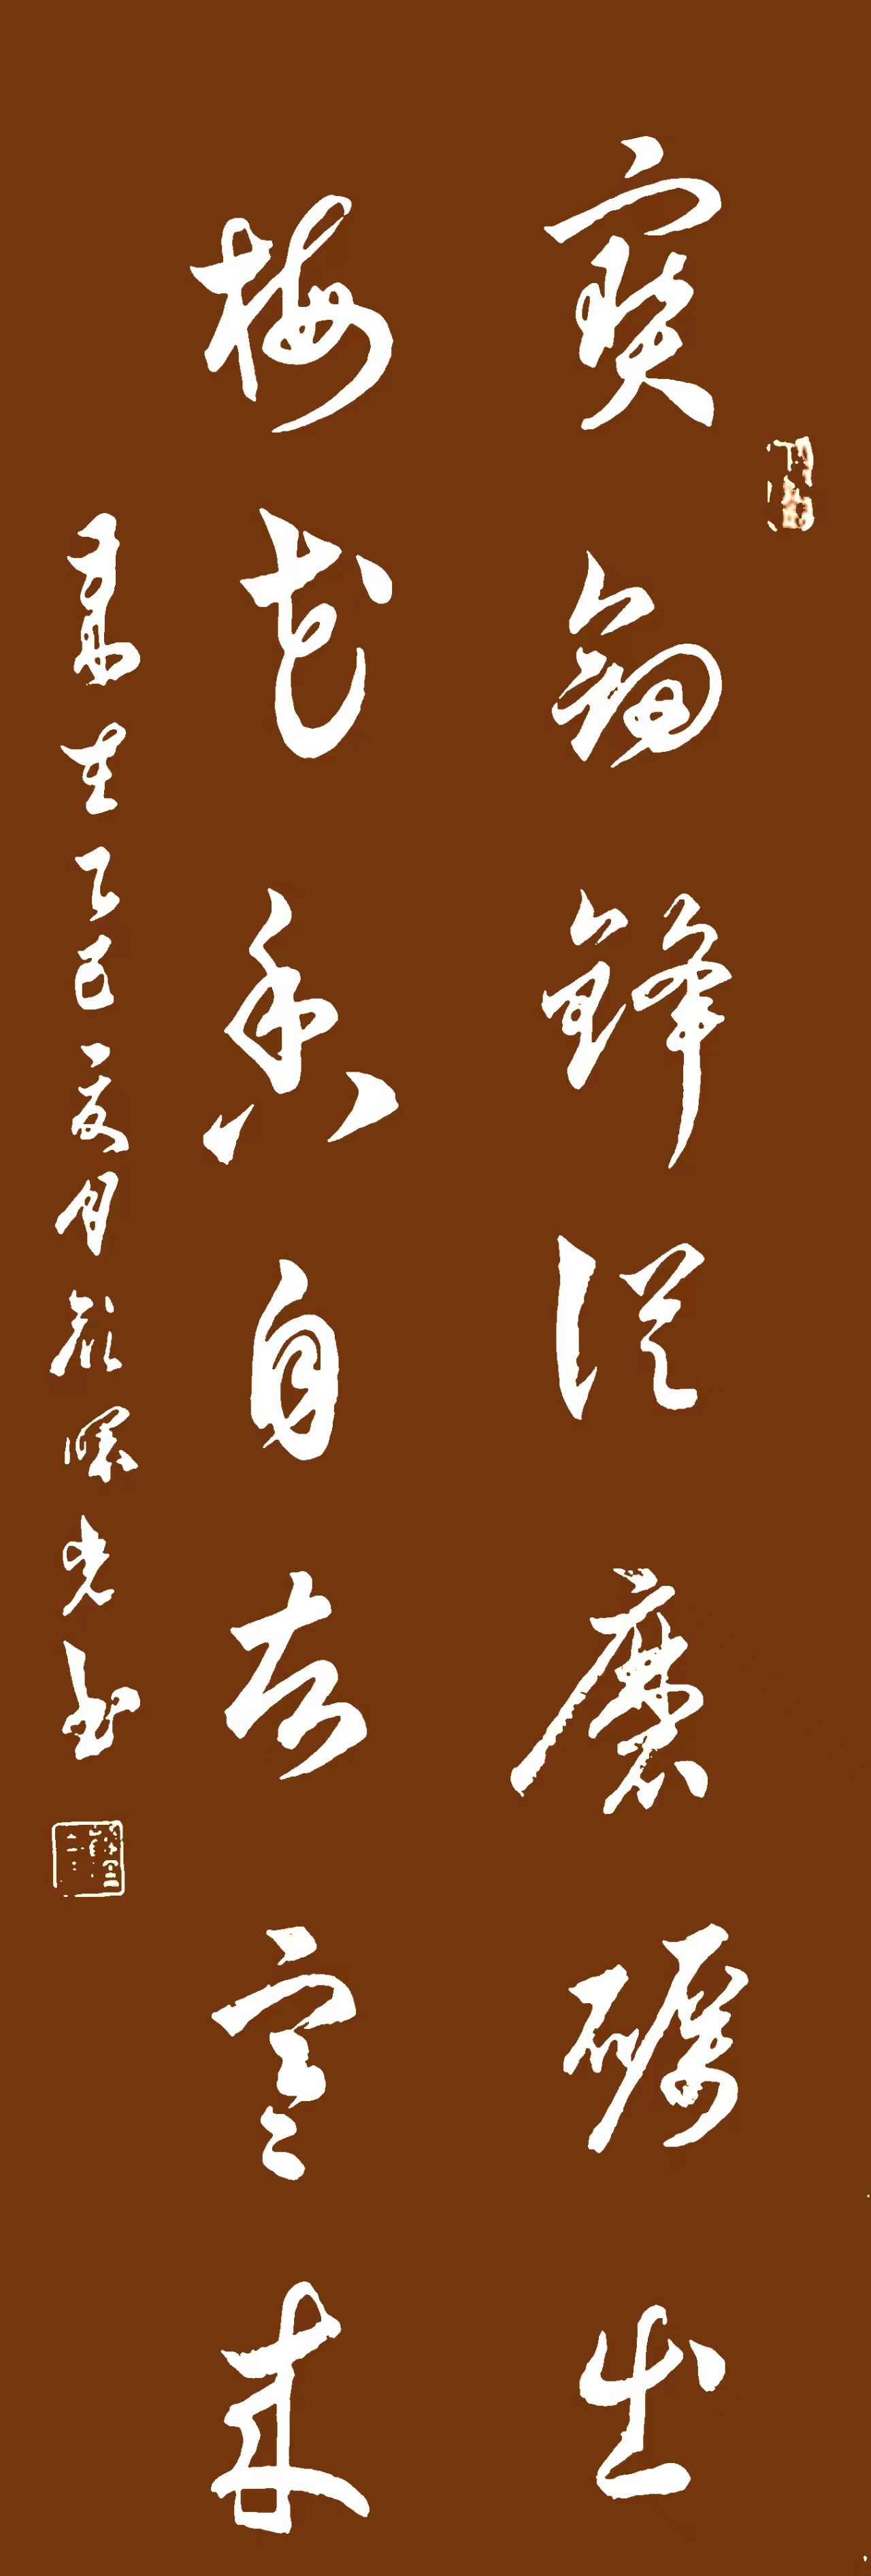 寶劍鋒從磨礪出
梅花香自苦寒來
歲在乙巳夏月 光書